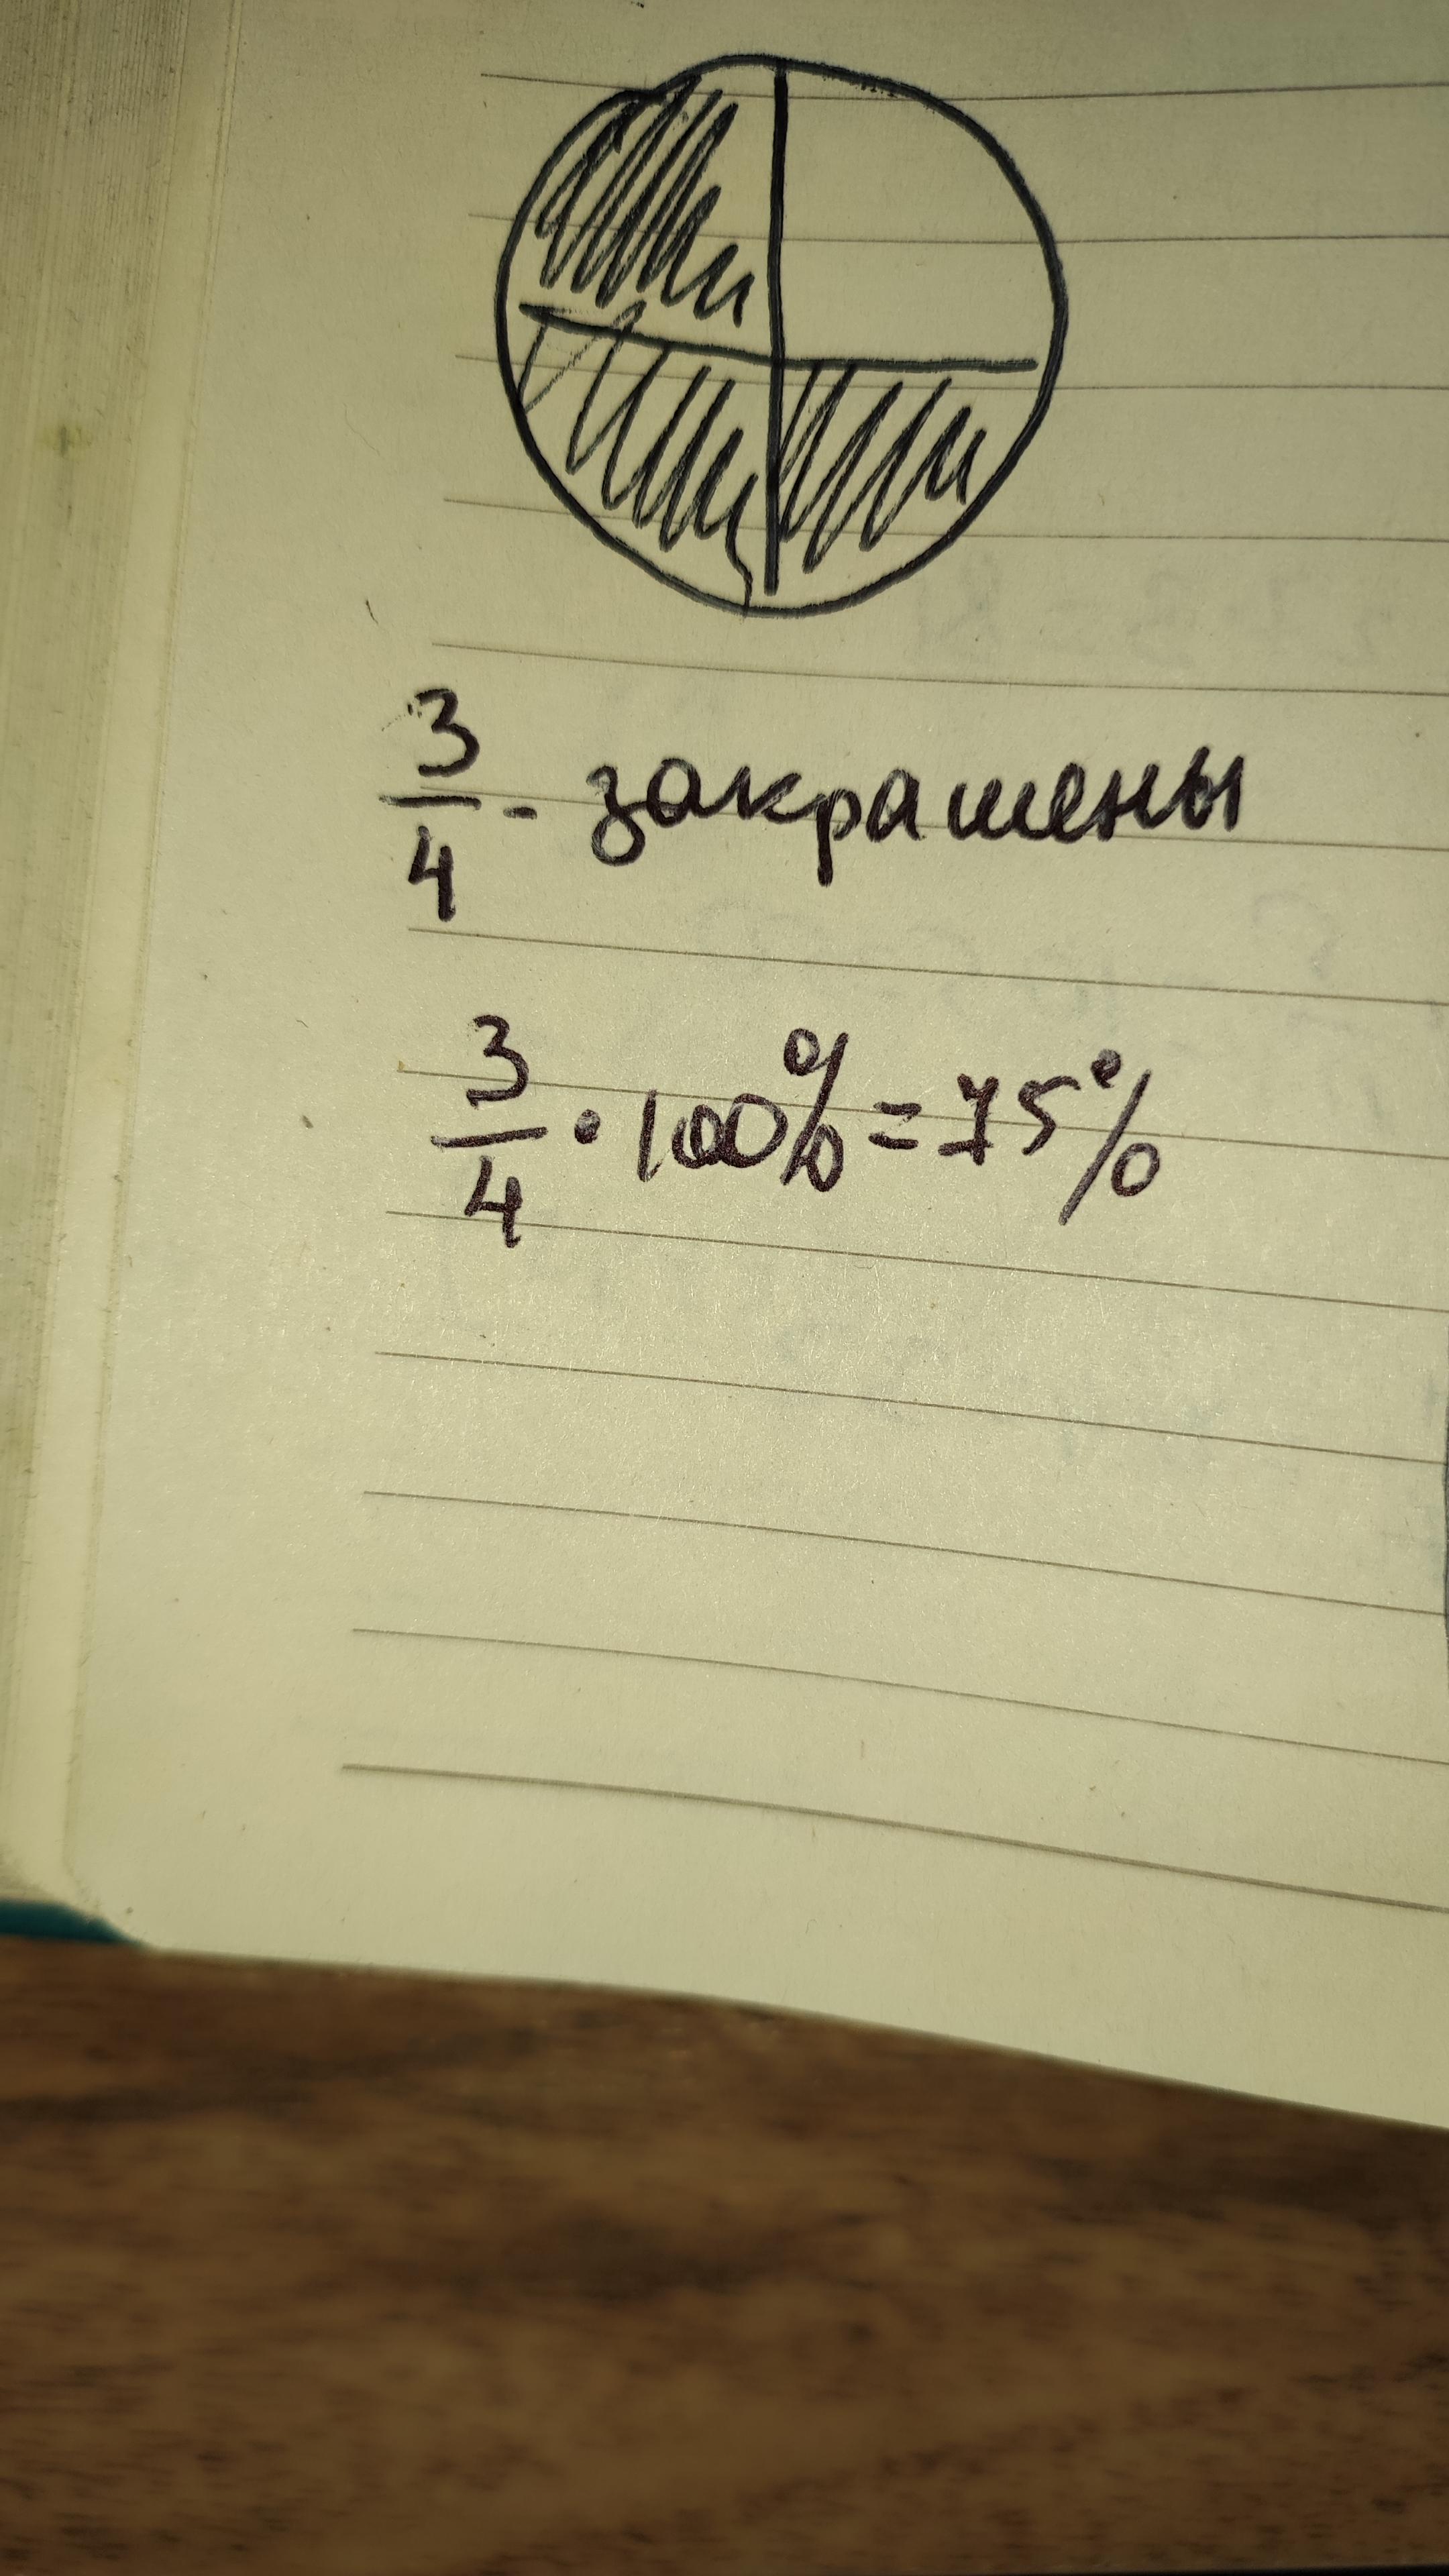 3/4 - закрашены
3/4 • 100% = 75%